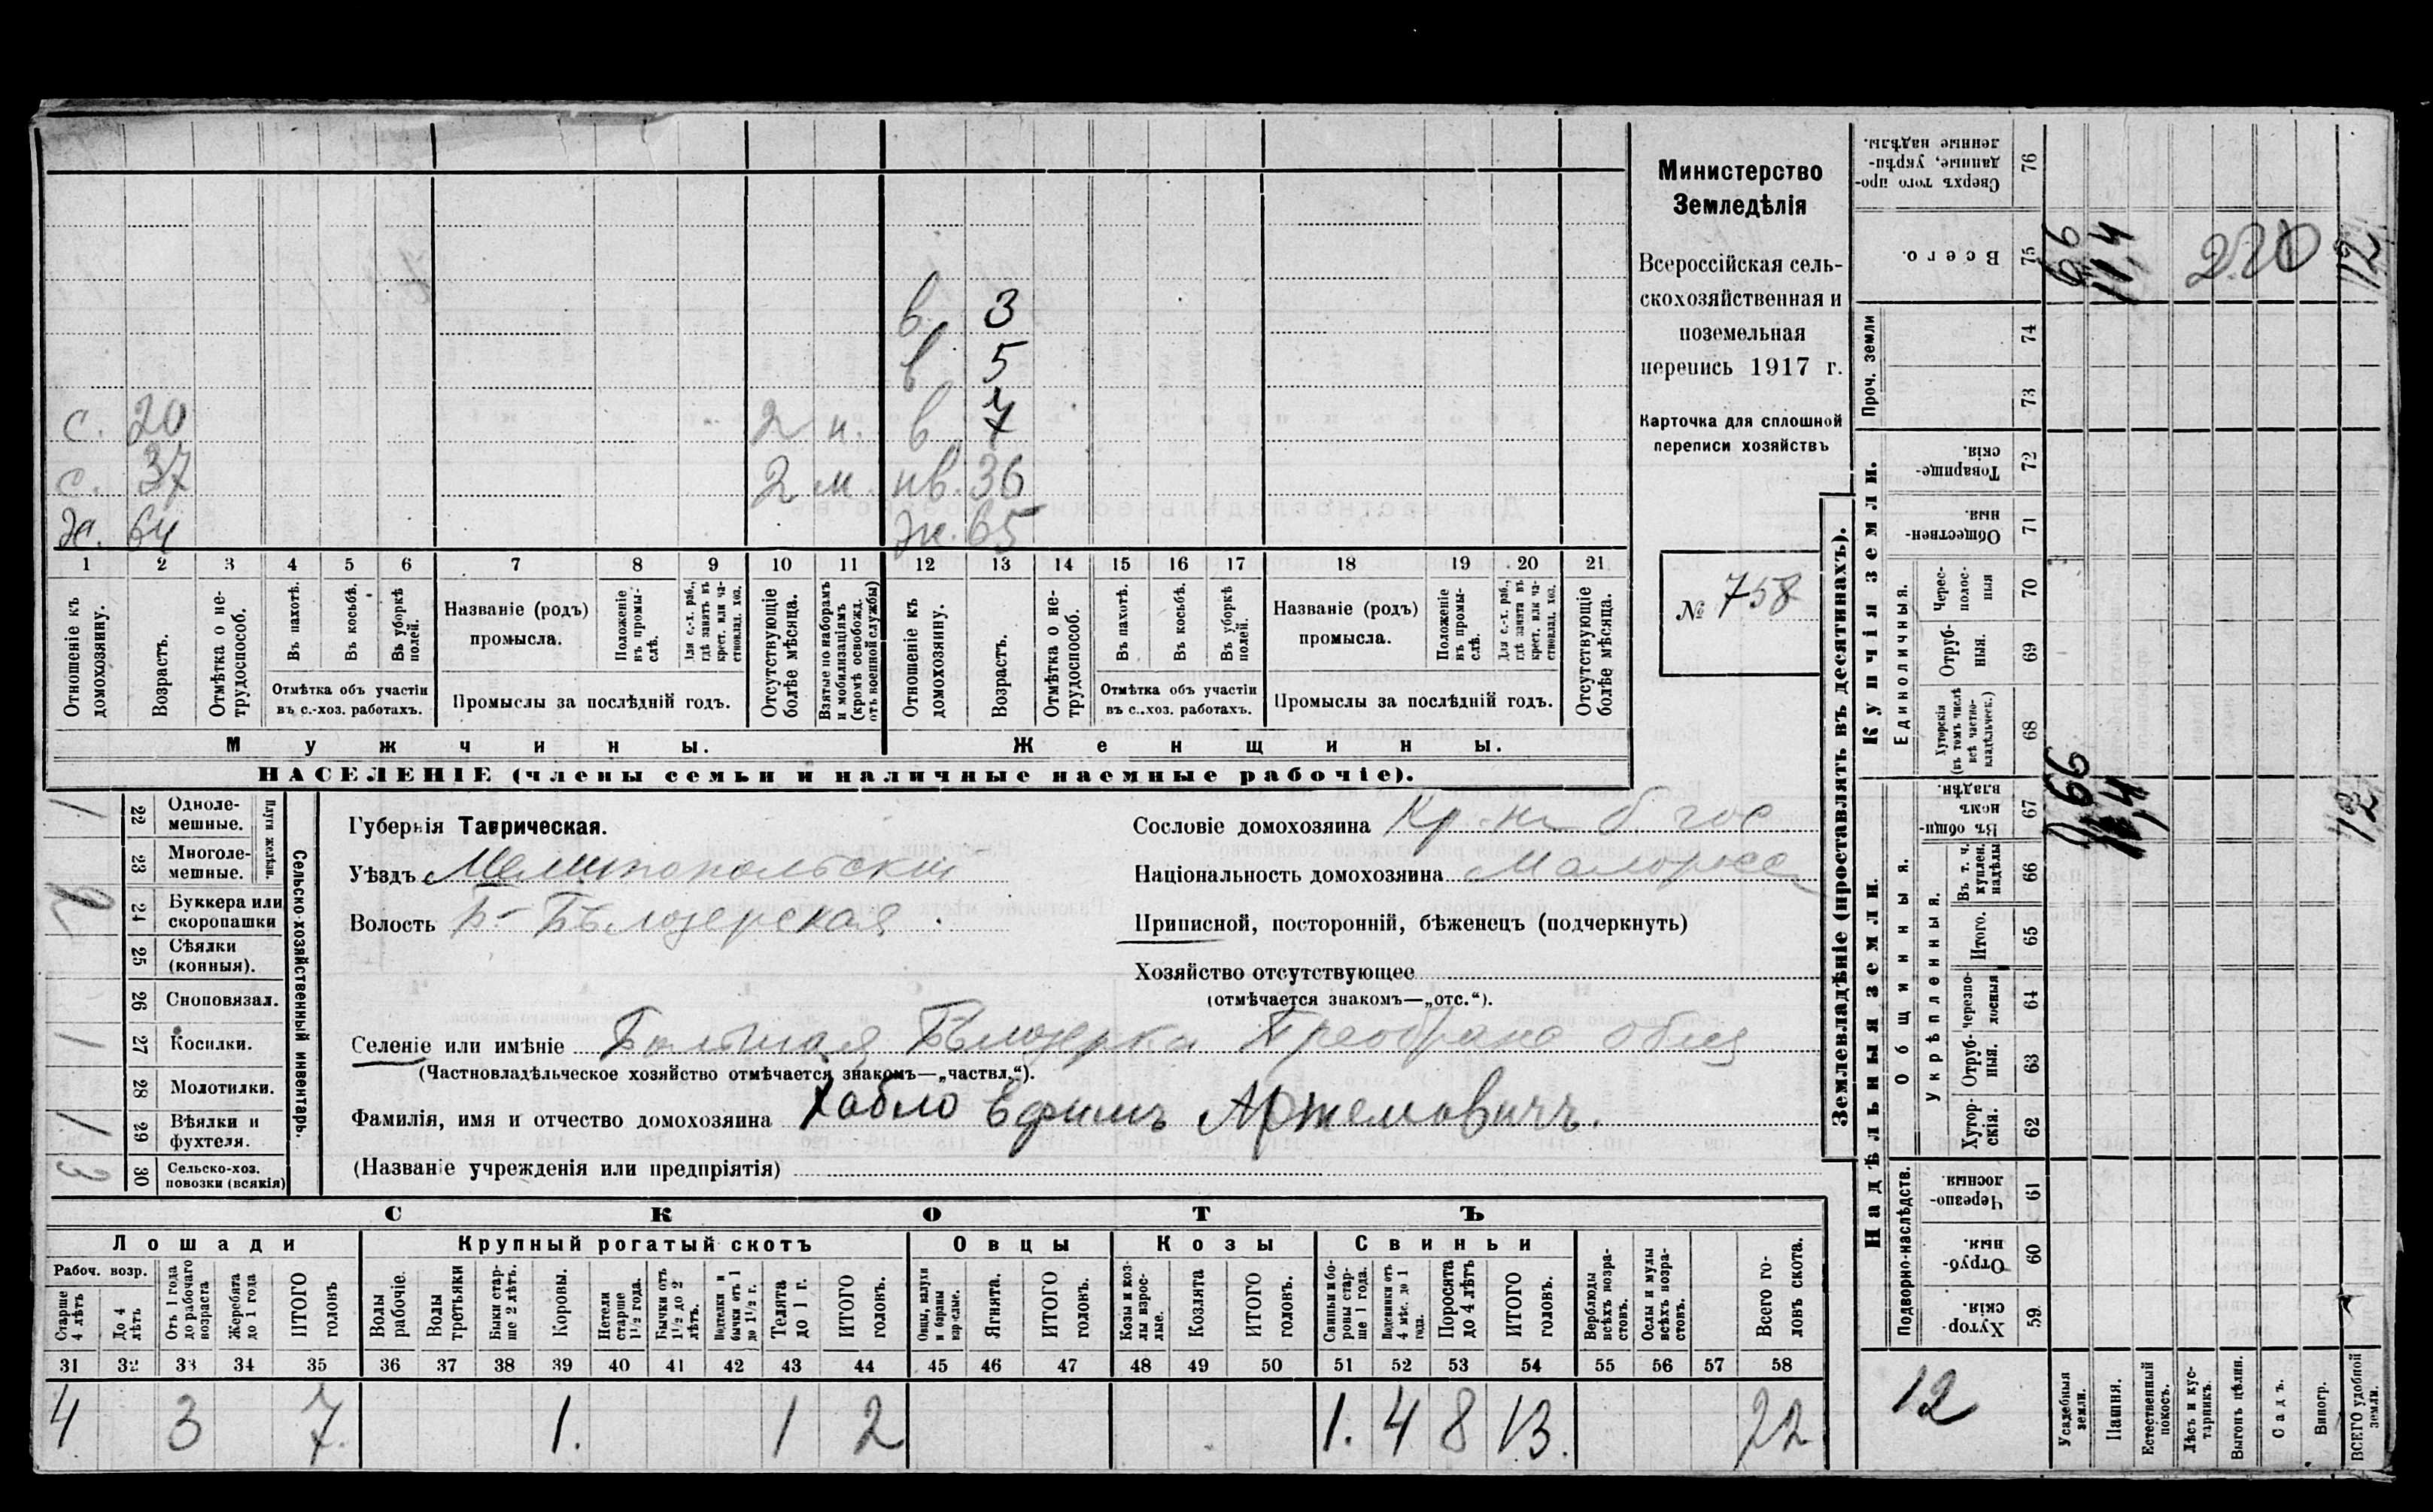 Министерство
Земледѣлія
Всероссійская сель-
скохозяйственная и
поземельная
перепись 1917 г.
Карточка для сплошной
переписи хозяйствъ
№ 758
в. 3
в 5
с. 20 2 н. в 7
с. 37 2 м. нв. 36
х. 64 ж. 65
1 2 3 4 5 6 7 8 9 10 11 12 13 14 15 16 17 18 19 20 21
Отношеніе къ домохозяину.
Возрастъ.
Отмѣтка о не-трудоспособ.
Въ пахотѣ.
Въ косьбѣ.
Въ уборкѣ полей.
Отмѣтка объ участіи въ с.-хоз. работахъ.
Названіе (родъ) промысла.
Положеніе въ промы-слѣ.
Для с.-х. раб., гдѣ занятъ въ крест. или ча-стновлад. хоз.
Промыслы за послѣдній годъ.
Отсутствующіе болѣе мѣсяца.
Взятые по наборамъ и мобилизаціямъ (кромѣ освобожд. отъ военной службы)
Отношеніе къ домохозяину.
Возрастъ.
Отмѣтка о не-трудоспособ.
Въ пахотѣ.
Въ косьбѣ.
Въ уборкѣ полей.
Отмѣтка объ участіи въ с.-хоз. работахъ.
Названіе (родъ) промысла.
Положеніе въ промы-слѣ.
Для с.-х. раб., гдѣ занята въ крест. или ча-стновлад. хоз.
Промыслы за послѣдній годъ.
Отсутствующіе болѣе мѣсяца.
Мужчины. Женщины.
НАСЕЛЕНІЕ (члены семьи и наличные наемные рабочіе).
Сельско-хозяйственный инвентарь.
Плуги желѣзн.
1 22 Одноле-мешные.
23 Многоле-мешные.
2 24 Буккера или скоропашки
25 Сѣялки (конныя).
26 Сноповязал.
1 27 Косилки.
28 Молотилки.
1 29 Вѣялки и фухтеля.
3 30 Сельско-хоз. повозки (всякія)
Губернія Таврическая.
Уѣздъ Мелитопольскій
Волость Б- Бѣлозерская
Сословіе домохозяина Кр.-нъ б. гос
Національность домохозяина Малоросс
Приписной, посторонній, бѣженецъ (подчеркнуть)
Хозяйство отсутствующее
(отмѣчается знакомъ—„отс.“).
Селеніе или имѣніе Большая Бѣлозерка Преображ общ
(Частновладѣльческое хозяйство отмѣчается знакомъ—„частвл.“).
Фамилія, имя и отчество домохозяина Хабло Ефимъ Артемовичъ.
(Названіе учрежденія или предпріятія)
СКОТЪ
Лошади Крупный рогатый скотъ Овцы Козы Свиньи
Рабоч. возр.
Старше 4 лѣтъ
До 4 лѣтъ
Отъ 1 года до рабочаго возраста
Жеребята до 1 года
ИТОГО головъ
Волы рабочіе.
Волы третьяки
Быки стар-ше 2 лѣтъ.
Коровы.
Нетели старше 1½ года.
Бычки отъ 1½ до 2 лѣтъ.
Подтелки и бычки отъ 1 до 1½ г.
Телята до 1 г.
ИТОГО головъ.
Овцы, валухи и бараны взрослые.
Ягнята.
ИТОГО головъ.
Козы и коз-лы взрос-лые.
Козлята
ИТОГО головъ.
Свиньи и бо-ровы стар-ше 1 года.
Подсвинки отъ 4 мѣс. до 1 года.
Поросята до 4 лѣтъ
ИТОГО головъ.
Верблюды всѣхъ возра-стовъ.
Ослы и мулы всѣхъ возра-стовъ.
Всего го-ловъ скота.
31 32 33 34 35 36 37 38 39 40 41 42 43 44 45 46 47 48 49 50 51 52 53 54 55 56 57 58
4 3 7. 1. 1 2 1. 4 8 13. 22
Землевладѣніе (проставлять въ десятинахъ).
Сверхъ того про-данные, укрѣп-ленные надѣлы. 76
Всего. 75 66 11,4 220 12
Проч. земли 74 73
Купчія земли.
Товарище-скія. 72
Обществен-ныя. 71
Единоличныя.
Черес-полос-ныя 70
Отруб-ныя. 69
Хуторскія (въ томъ числѣ всѣ частно-владѣльческ.) 68
Надѣльныя земли.
Общинныя.
Въ общи-номъ владѣн. 67 12
Въ т. ч. куплен. надѣлы 66
Укрѣпленныя.
Итого. 65
Черезпо-лосныя 64
Отруб-ныя. 63
Хутор-скія. 62
Подворно-наслѣдств.
Черезпо-лосныя. 61
Отруб-ныя. 60
Хутор-скія. 59
12
Усадебныя земли.
Пашня.
Естественный покосъ.
Лѣсъ и кус-тарникъ.
Выгонъ цѣлин.
Садъ.
Виногр.
ВСЕГО удобной земли.